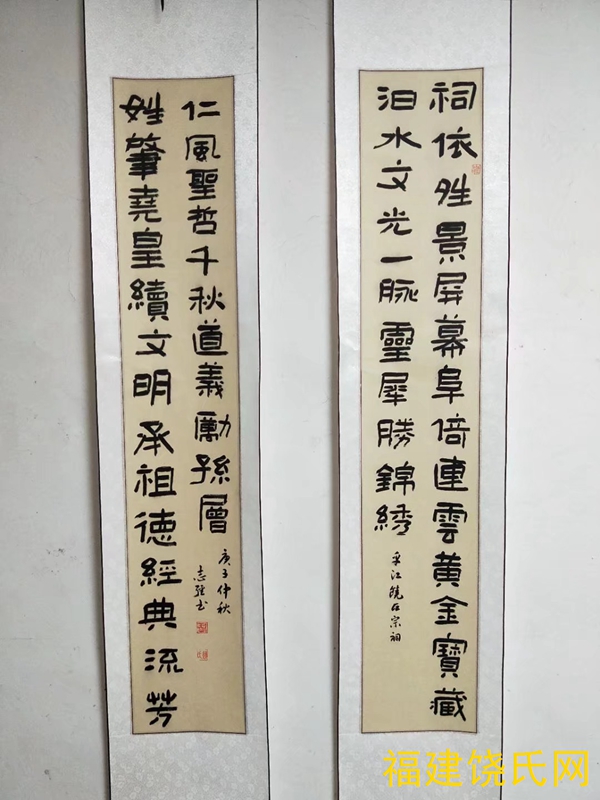 祠依胜景屏幕阜倚連雲黃金寶藏
汨水文光一脉靈犀勝錦綉
平江饒氏宗祠
姓肇堯皇續文明承祖德經典流芳
仁風聖哲千秋道義勵孫層
庚子仲秋
志書
福建饶氏网